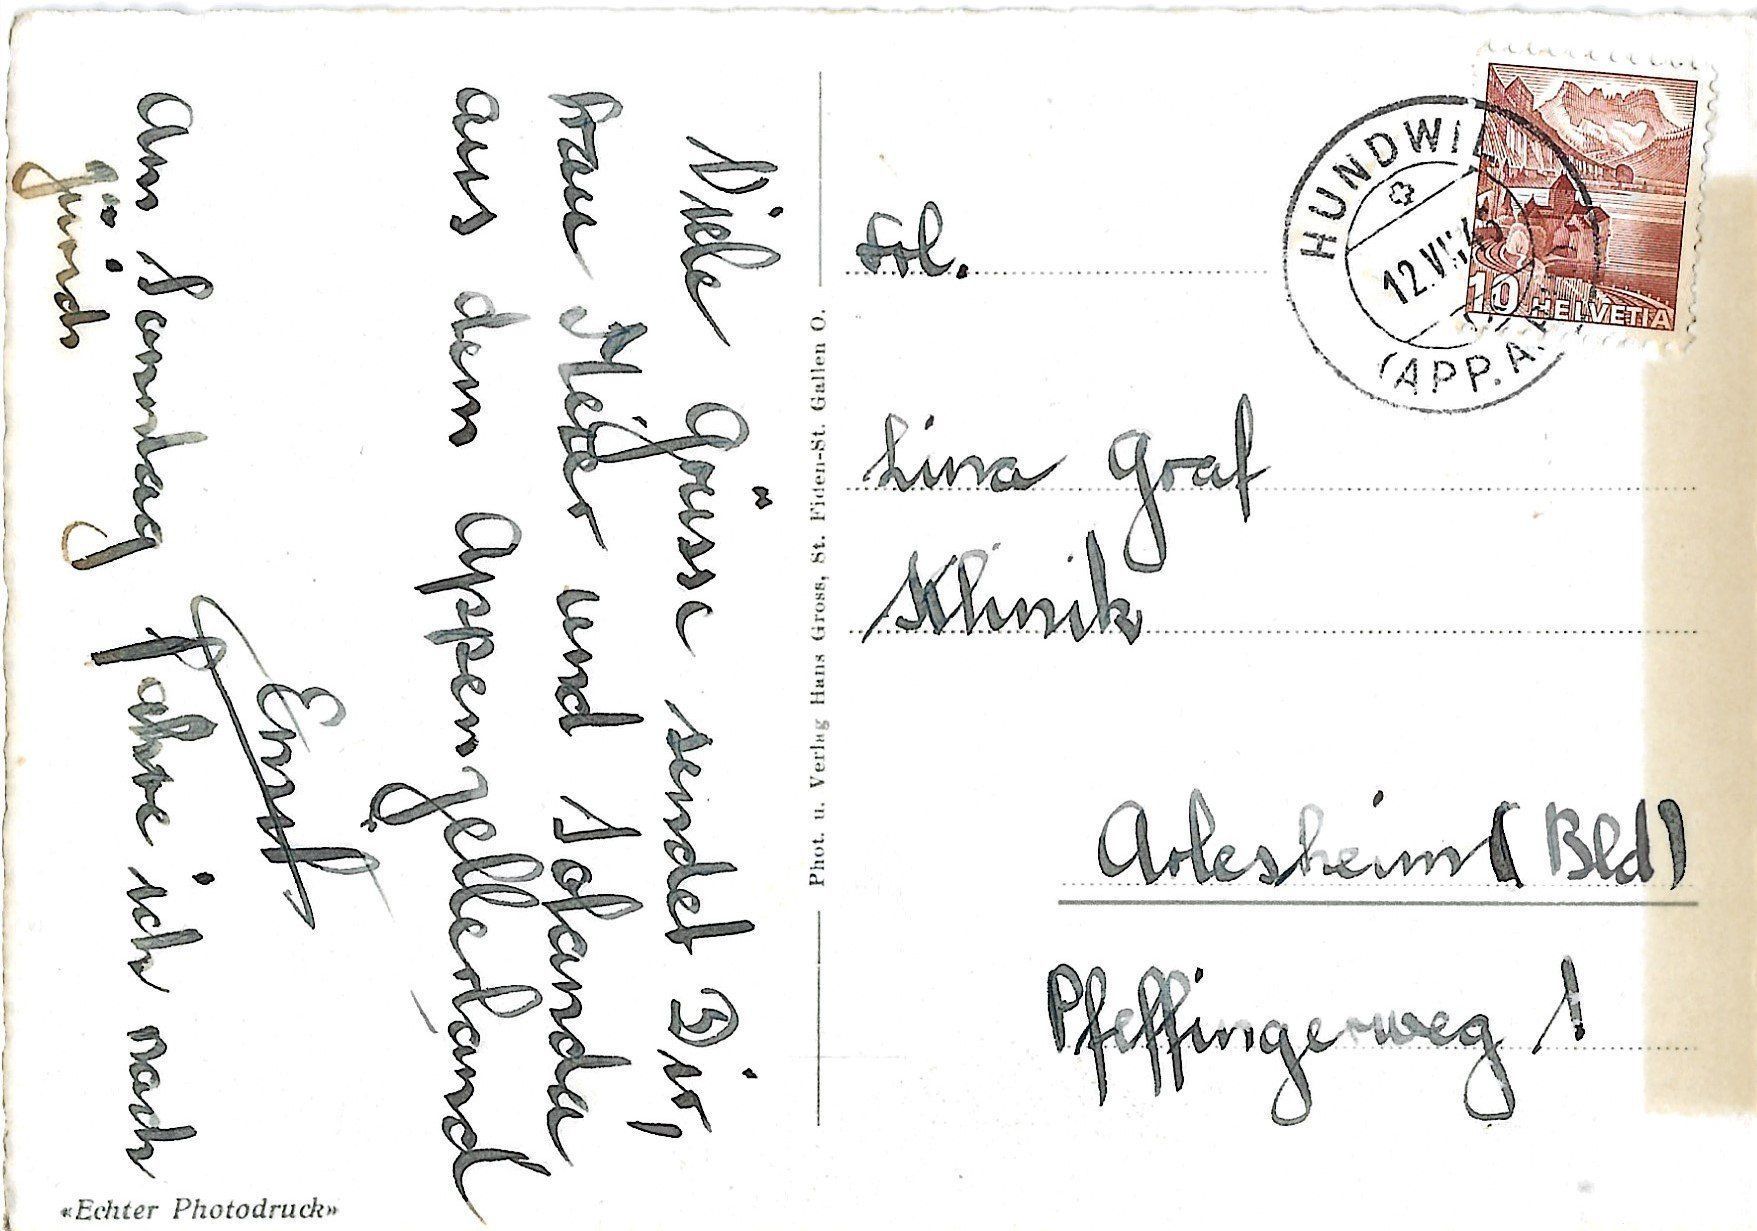 Viele Grüsse sendet Dir,
Frau Meier und Johanda
aus dem Appenzellerland
Ernst
Am Sonntag fahre ich nach
Zürich
«Echter Photodruck»
Phot. u. Verlag Hans Gross, St. Fiden-St. Gallen O.
Frl.
Lina Graf
Klinik
Arlesheim (Bld)
Pfeffingerweg 1
HUNDWIL
12.VII
(APP.A.
10 HELVETIA